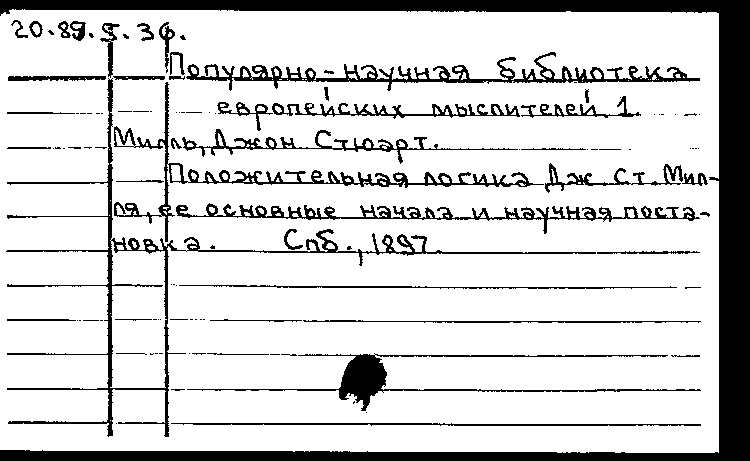 20.89.5.36.
Популярно-научная библиотека
европейских мыслителей. 1.
Милль, Джон Стюарт.
Положительная логика Дж. Ст. Мил-
ля, ее основные начала и научная поста-
новка. Спб., 1897.